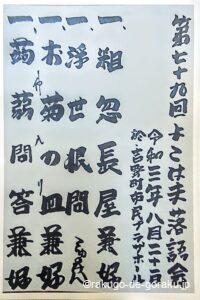 第七十九回 よこはま落語会
令和三年八月二十一日
於・吉野町市民プラザホール
一、粗忽長屋 兼好
一、浮世根問 こみち
仲入り
一、お菊の皿 兼好
一、蒟蒻問答 兼好
©rakugo-de-goraku.com